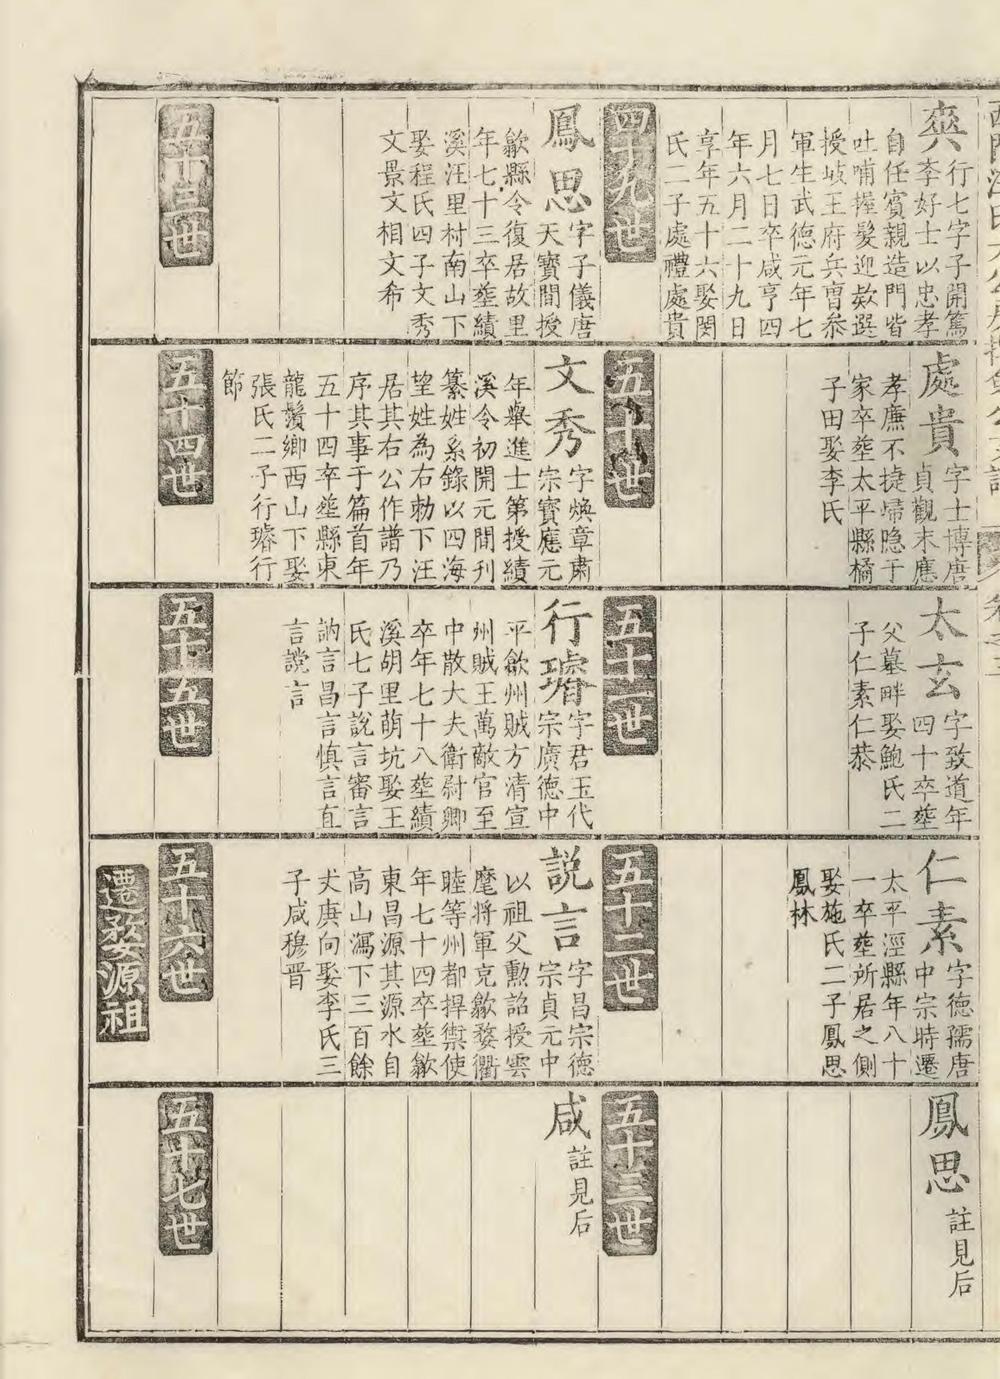 爽
行七字子開篤
李好士以忠孝
自任賓親造門皆
吐哺握髮迎欵選
授岐王府兵曹叅
軍生武德元年七
月七日卒咸亨四
年六月二十九日
享年五十六娶閔
氏二子處禮處貴
處貴
字士博唐
貞觀末應
孝廉不捷歸隐于
家卒塟太平縣橘
子田娶李氏
太玄
字致道年
四十卒塟
父墓畔娶鮑氏二
子仁素仁恭
仁素
字德孺唐
中宗時遷
太平涇縣年八十
一卒塟所居之側
娶施氏二子鳳思
鳳林
鳳思
註見后
四十九世
五十世
五十一世
五十二世
五十三世
鳳思
字子儀唐
天寳間授
歙縣令復居故里
年七十三卒塟績
溪汪里村南山下
娶程氏四子文秀
文景文相文希
文秀
字煥章肅
宗寳應元
年舉進士第授績
溪令初開元間刋
纂姓系錄以四海
望姓為右勅下汪
居其右公作譜乃
序其事于篇首年
五十四卒塟縣東
龍鬚鄉西山下娶
張氏二子行璿行
節
行璿
字君玉代
宗廣德中
平歙州賊方清宣
州賊王萬敵官至
中散大夫衛尉卿
卒年七十八塟績
溪胡里萌坑娶王
氏七子說言審言
訥言昌言慎言直
言讜言
説言
字昌宗德
宗貞元中
以祖父勲詔授雲
麾將軍克歙婺衢
睦等州都捍禦使
年七十四卒塟歙
東昌源其源水自
高山瀉下三百餘
丈庚向娶李氏三
子咸穆晋
咸
註見后
五十三世
五十四世
五十五世
五十六世
五十七世
遷婺源祖